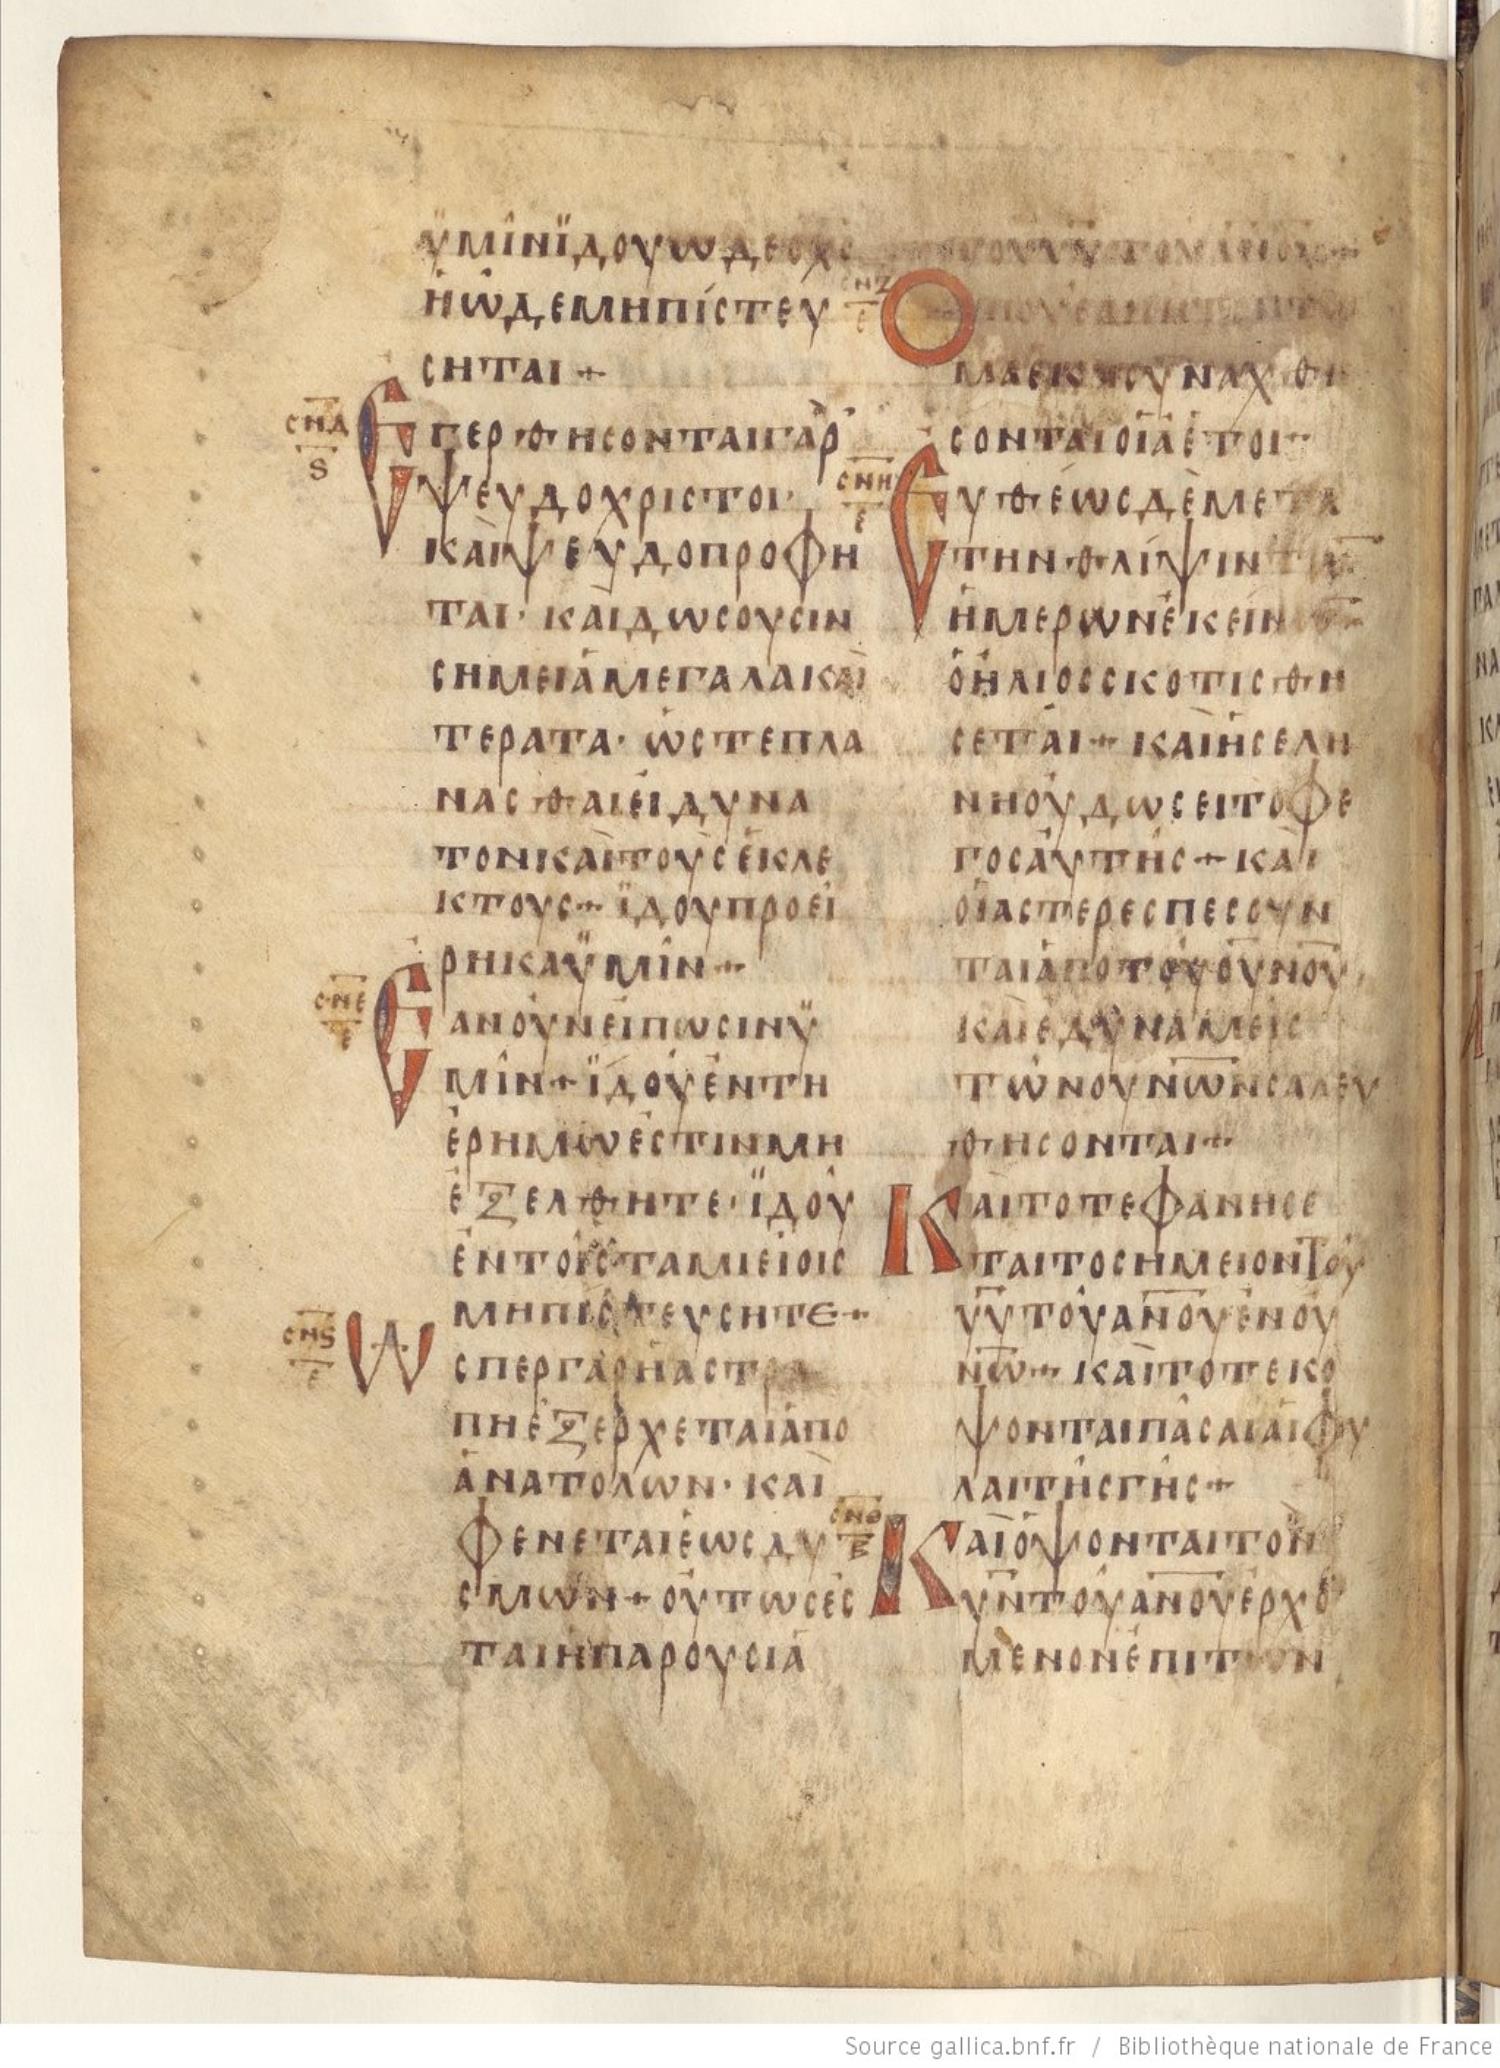 ϋμῖνϊδουωδεοχς
ἠὧδεμηπίστευ
σητε+
σνδ
ς
Εγερθησονταιγὰρ
ψευδοχριστοι·
καὶψευδοπροφη
ται· καὶδωσουσιν
σημεῖαμεγαλακαὶ
τερατα· ὡστεπλα
νασθαιεἰδυνα
τονκαὶτοὺςἐκλε
κτους+ ϊδουπροεί
ρηκαϋμῖν+
σνε
ε
Εανοὐνεἰπωσινϋ
μῖν+ϊδοὺἐντη
ἐρημωἐστινμη
ἐξελθητε·ϊδοὺ
ἐντοῖςταμιείοις
μηπιστευσητε+
σνς
ε
Wσπεργαρἡαστρα
πηἐξερχεταιἀπο
ἀνατολων· καὶ
φενεταιἑωςδυ
σμῶν+οὑτωςἐς
ταιἡπαρουσιὰ
τουυυτουανου+
σνζ
ε
Ο
σονταιοἱἀετοι
σνη
ε
Ευθέωςδὲμετα
τηνθλίψιν
ἡμερωνἐκείν
ὁἡλιοςσκοτισθη
σεται+ καὶἡσελη
νηοὐδωσειτοφε
γοςἀυτῆς+και
οἱαστερεςπεσουν
ταιἀποτοὐουνου,
καὶεδυναμεις
τῶνουνωνσαλευ
θησονται+
Καιτοτεφανησε
ταιτοσημειοντοὐ
υυτοὐανουἐνου
νω+ καὶτοτεκο
ψονταιπᾶσαιαἱφυ
λαιτῆςγῆς+
σνθ
β
Καὶὀψονταιτὸν
υντοὐανουἐρχὸ
μενονἐπιτων
Source gallica.bnf.fr / Bibliothèque nationale de France